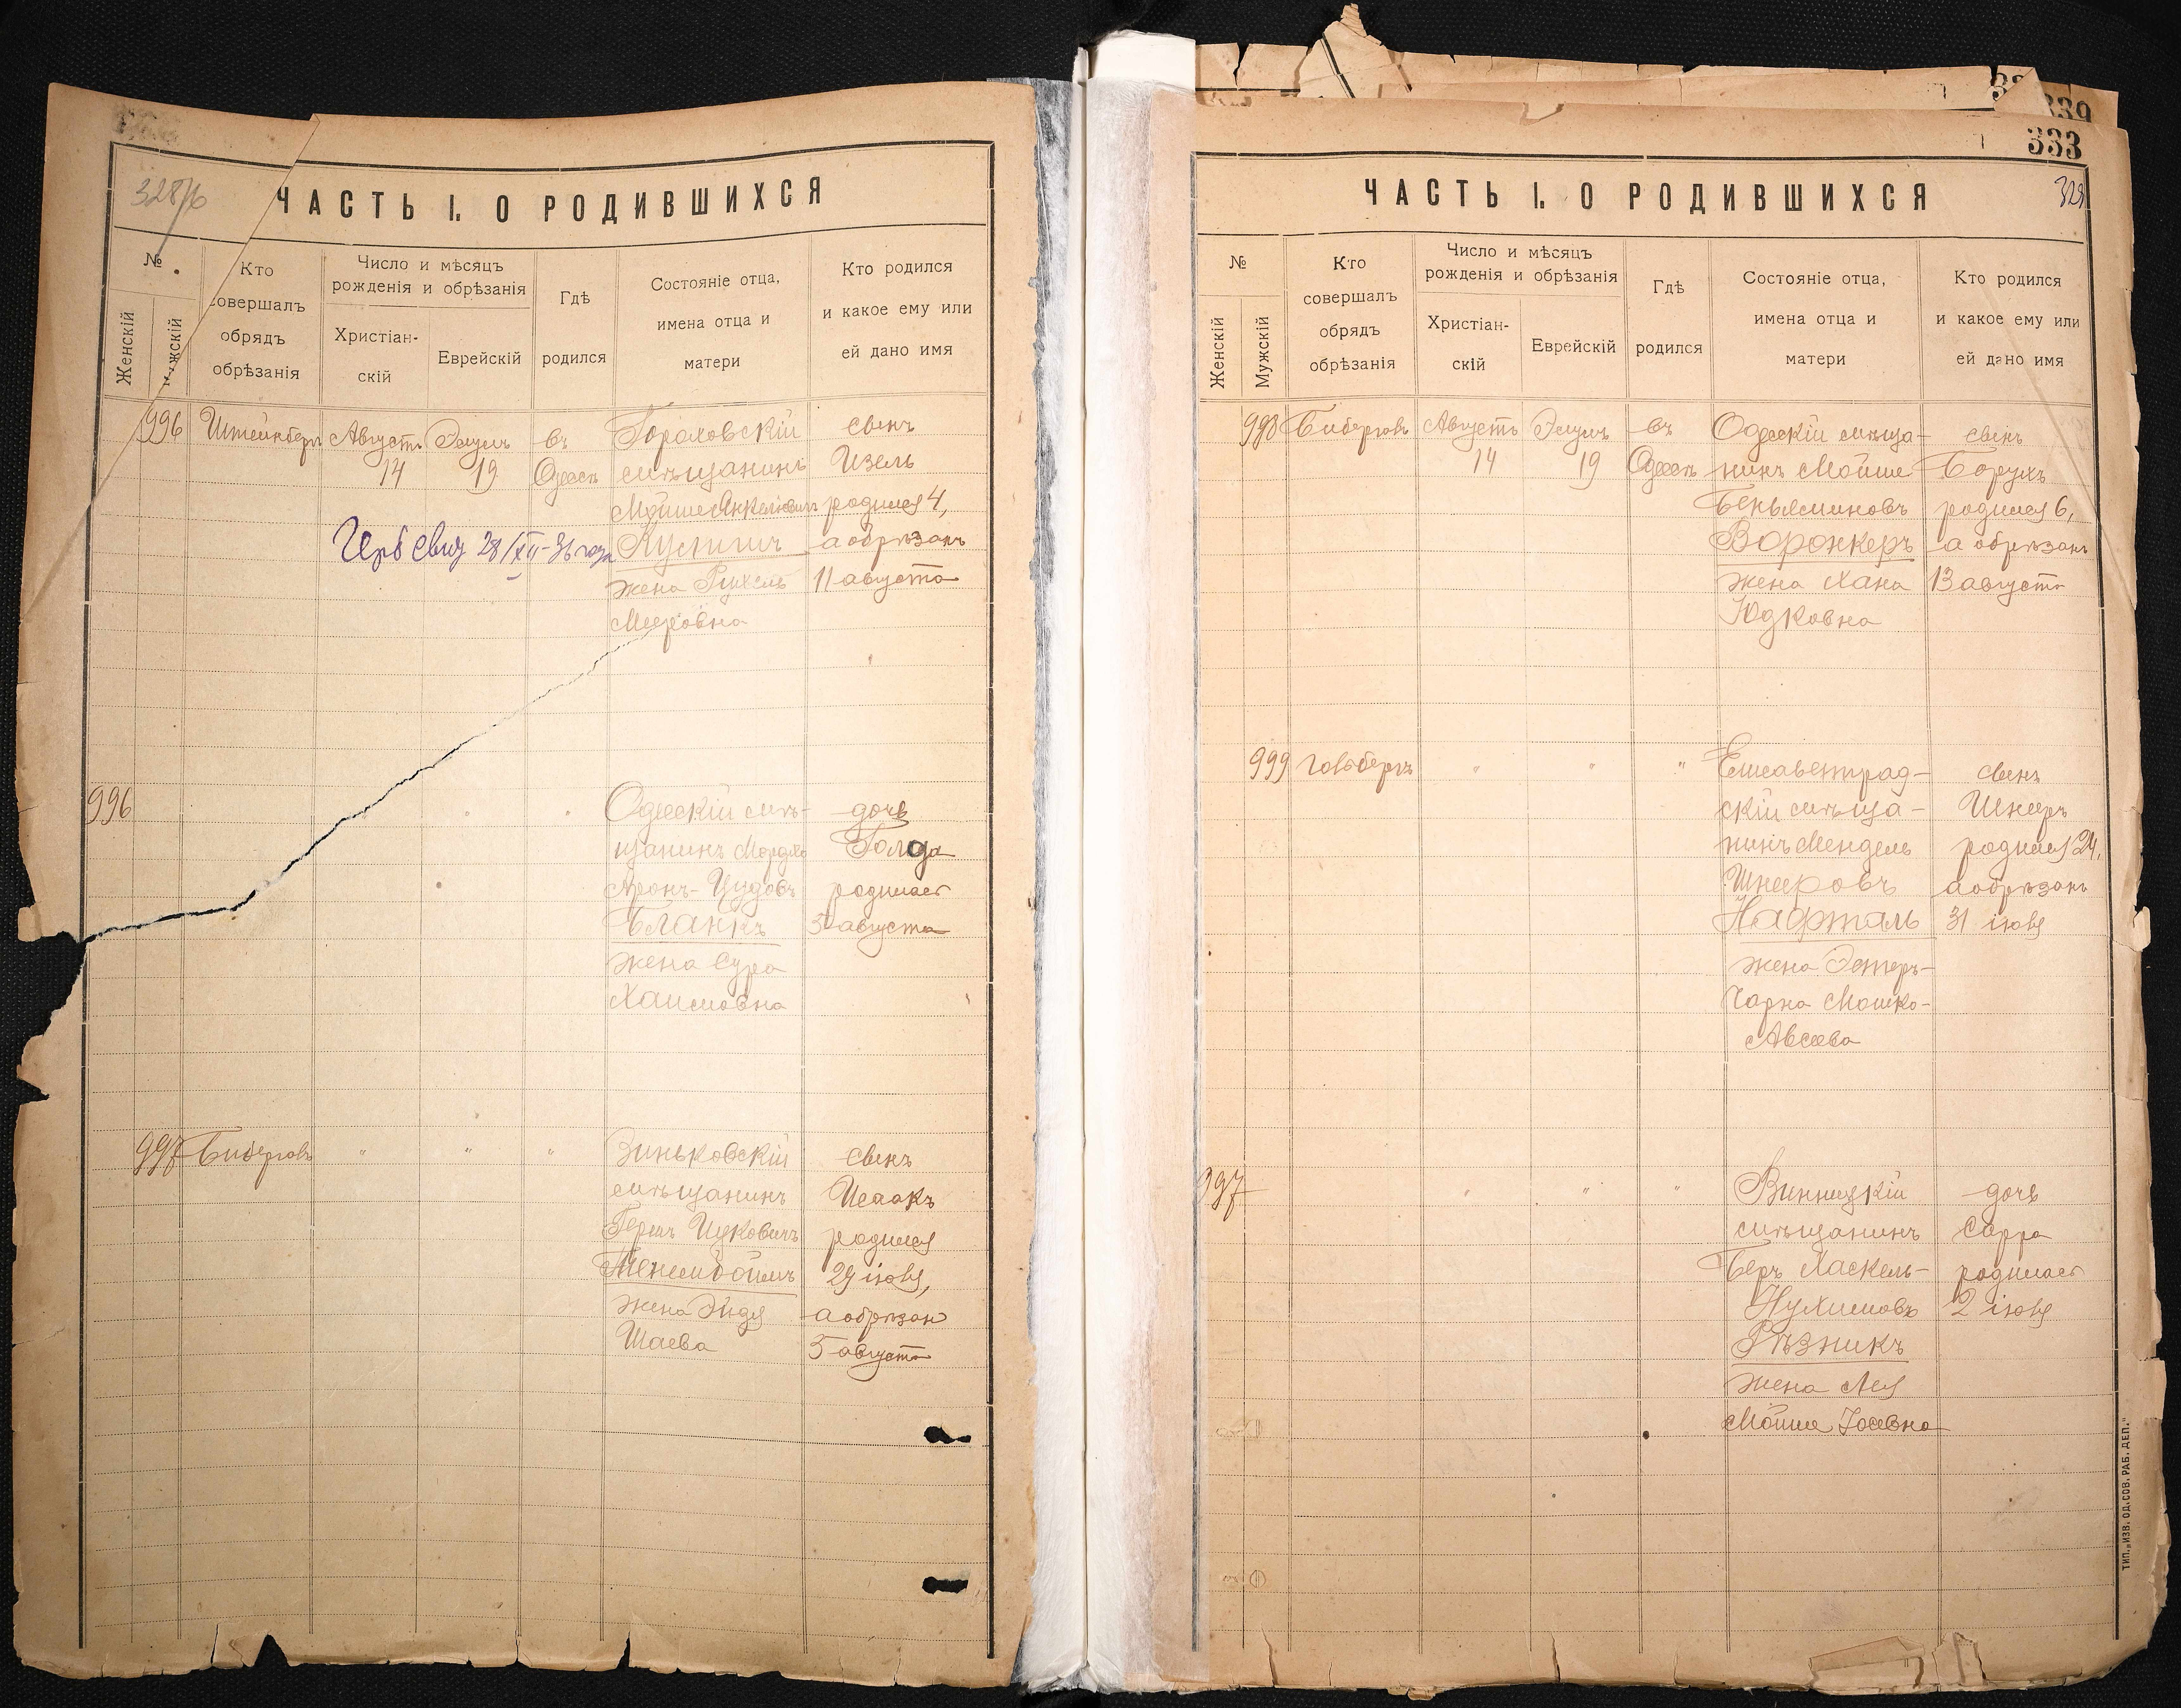 328/об
ЧАСТЬ I. О РОДИВШИХСЯ
№
Женскій
Мужскій
Кто совершалъ обрядъ обрѣзанія
Число и мѣсяцъ рожденія и обрѣзанія
Христіан-
скій
Еврейскій
Гдѣ родился
Состояніе отца, имена отца и матери
Кто родился и какое ему или ей дано имя
996 Штейнбергъ Августъ Элулъ въ Гораховскій сынъ
14 19 Одессѣ мѣщанинъ Изель
Мойше Анкелевичъ родился 4,
28/XII-36 года а обрѣзанъ
жена Рухель 11 августа
Мееровна
996 Одесскій мѣ- дочь
щанинъ Мордко Голда
Аронъ- родилась
Бланкъ 5 августа
жена Сура
Хаимовна
997 Биберговъ " " " Зиньковскій сынъ
мѣщанинъ Исаакъ
Гершъ Ицковичъ родился
29 іюля,
жена Эйдя а обрѣзан
Шаева 5 августа
333
328
ЧАСТЬ I. О РОДИВШИХСЯ
№
Женскій
Мужскій
Кто совершалъ обрядъ обрѣзанія
Число и мѣсяцъ рожденія и обрѣзанія
Христіан-
скій
Еврейскій
Гдѣ родился
Состояніе отца, имена отца и матери
Кто родился и какое ему или ей дано имя
998 Биберговъ Августъ Элулъ въ Одесскій мѣща- сынъ
14 19 Одессѣ нинъ Мойше Борухъ
Беньяминовъ родился 6,
Воронкеръ а обрѣзанъ
жена Хана 13 августа
Юдковна
999 Гольбергъ " " " Елисаветград- сынъ
скій мѣща- Шнееръ
нинъ Мендель родился 24,
Шнееровъ а обрѣзанъ
Нафталь 31 іюля
жена Эстеръ-
Чарна Мошко-
Авсеева
997 " " " Винницкій дочь
мѣщанинъ Сарра
Беръ Хаскель- родилась
Нухимовъ 2 іюля
Рѣзникъ
жена Лея
Мойше Іосевна
ТИП. „ИЗВ. ОД. СОВ. РАБ. ДЕП."
339